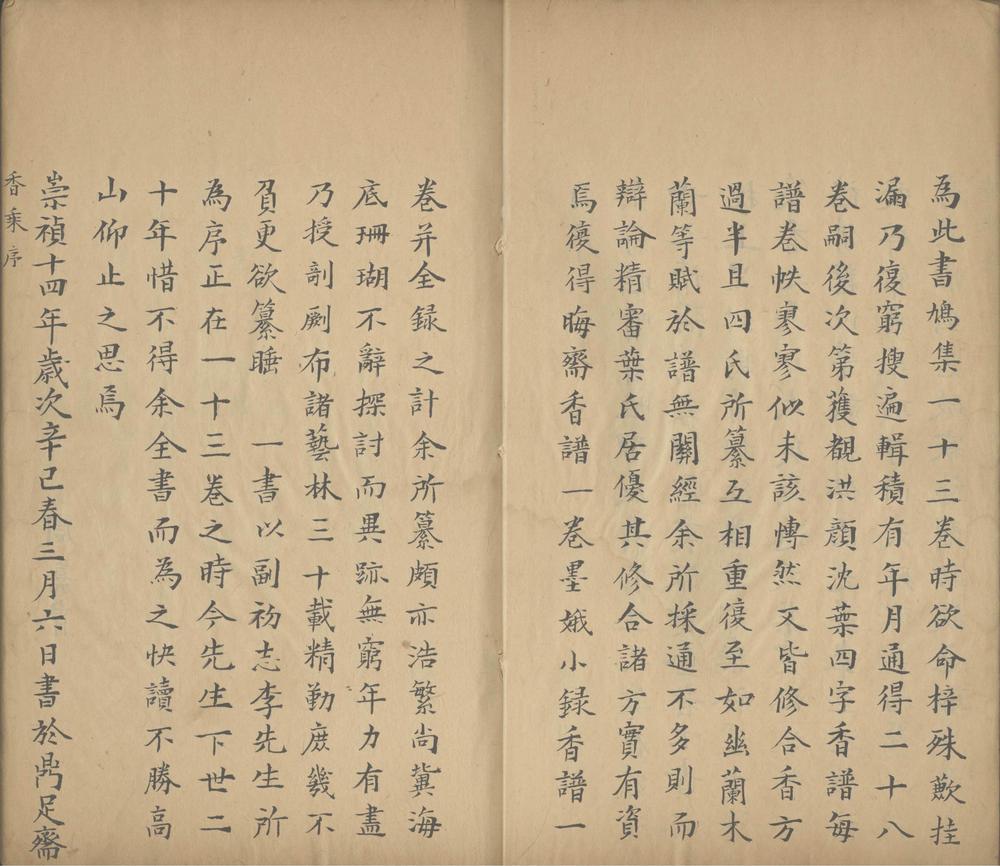 為此書鳩集一十三卷時欲命梓殊歉挂
漏乃復窮搜遍輯積有年月通得二十八
卷嗣後次第獲覩洪顔沈葉四字香譜每
譜卷帙寥寥似未該愽然又皆修合香方
過半且四氏所纂互相重復至如幽蘭木
蘭等賦於譜無關經余所採通不多則而
辯論精審葉氏居優其修合諸方實有資
焉復得晦齋香譜一卷墨娥小録香譜一
卷并全録之計余所纂頗亦浩繁尚冀海
底珊瑚不辭探討而異跡無窮年力有盡
乃授剞劂布諸藝林三十載精勤庶幾不
負更欲纂睡　一書以副初志李先生所
為序正在一十三卷之時今先生下世二
十年惜不得余全書而為之快讀不勝高
山仰止之思焉
崇禎十四年歲次辛巳春三月六日書於鼎足齋
香乘序